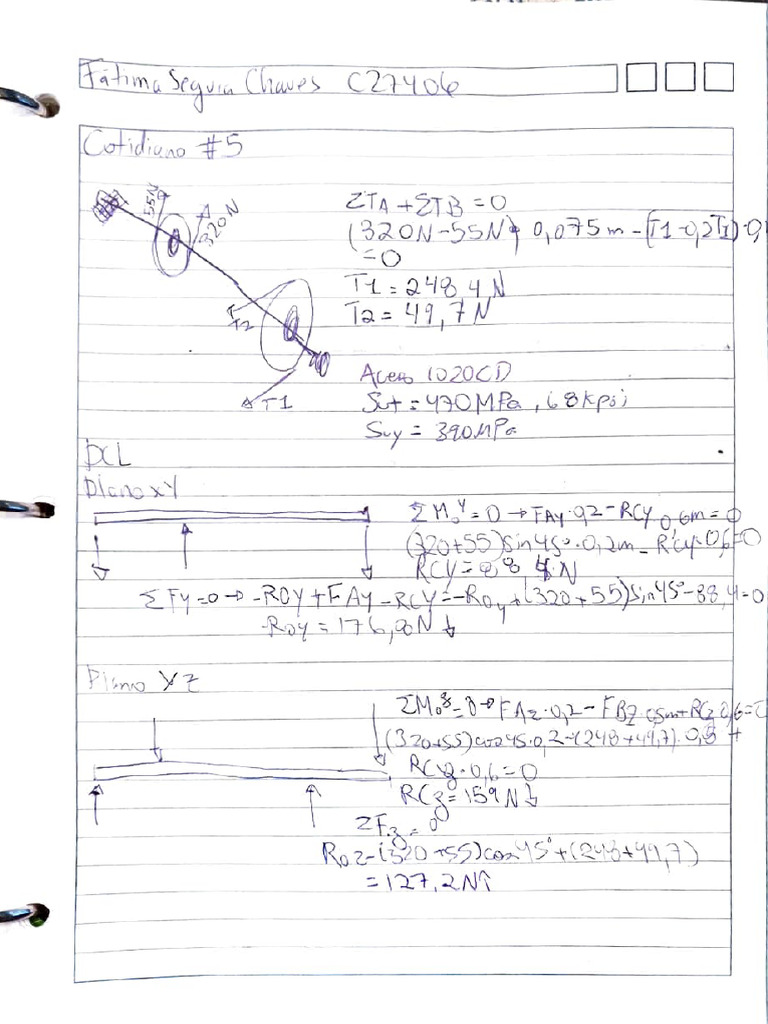 Fátima Segura Chaves C27406
Cotidiano #5
55N
320N
T2
T1
ΣTA + ΣTB = 0
(320N-55N) 0,075m - (T1-0,2T1)·0,
=0
T1 = 248,4N
T2 = 49,7N
Acero 1020CD
Sut = 470MPa, 68kpsi
Suy = 390MPa
DCL
Plano xy
ΣMoʸ = 0 → FAy·0,2 - RCy 0,6m = 0
(320+55)sin45°·0,2m - RCy·0,6=0
RCy = 88,4N
ΣFy=0 → -ROy + FAy - RCy = -ROy + (320+55)sin45° - 88,4=0
-ROy = 176,8N ↓
Plano xz
ΣMo = 0 → FAz·0,2 - FBz·0,5m + RCz 0,6=0
(320+55)cos45·0,2-(248+49,7)·0,5 +
RCz·0,6=0
RCz = 159N ↓
ΣFz = 0
ROz - (320+55)cos45° + (248+49,7)
= 127,2N↑